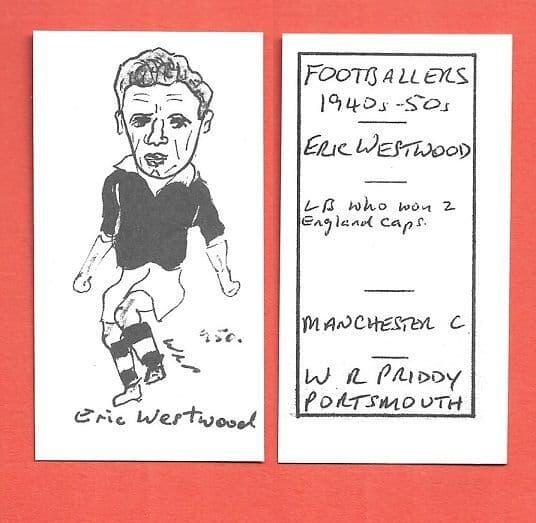 950.
Eric Westwood
FOOTBALLERS
1940s-50s
ERIC WESTWOOD
LB who won 2
England caps.
MANCHESTER C
W R PRIDDY
PORTSMOUTH